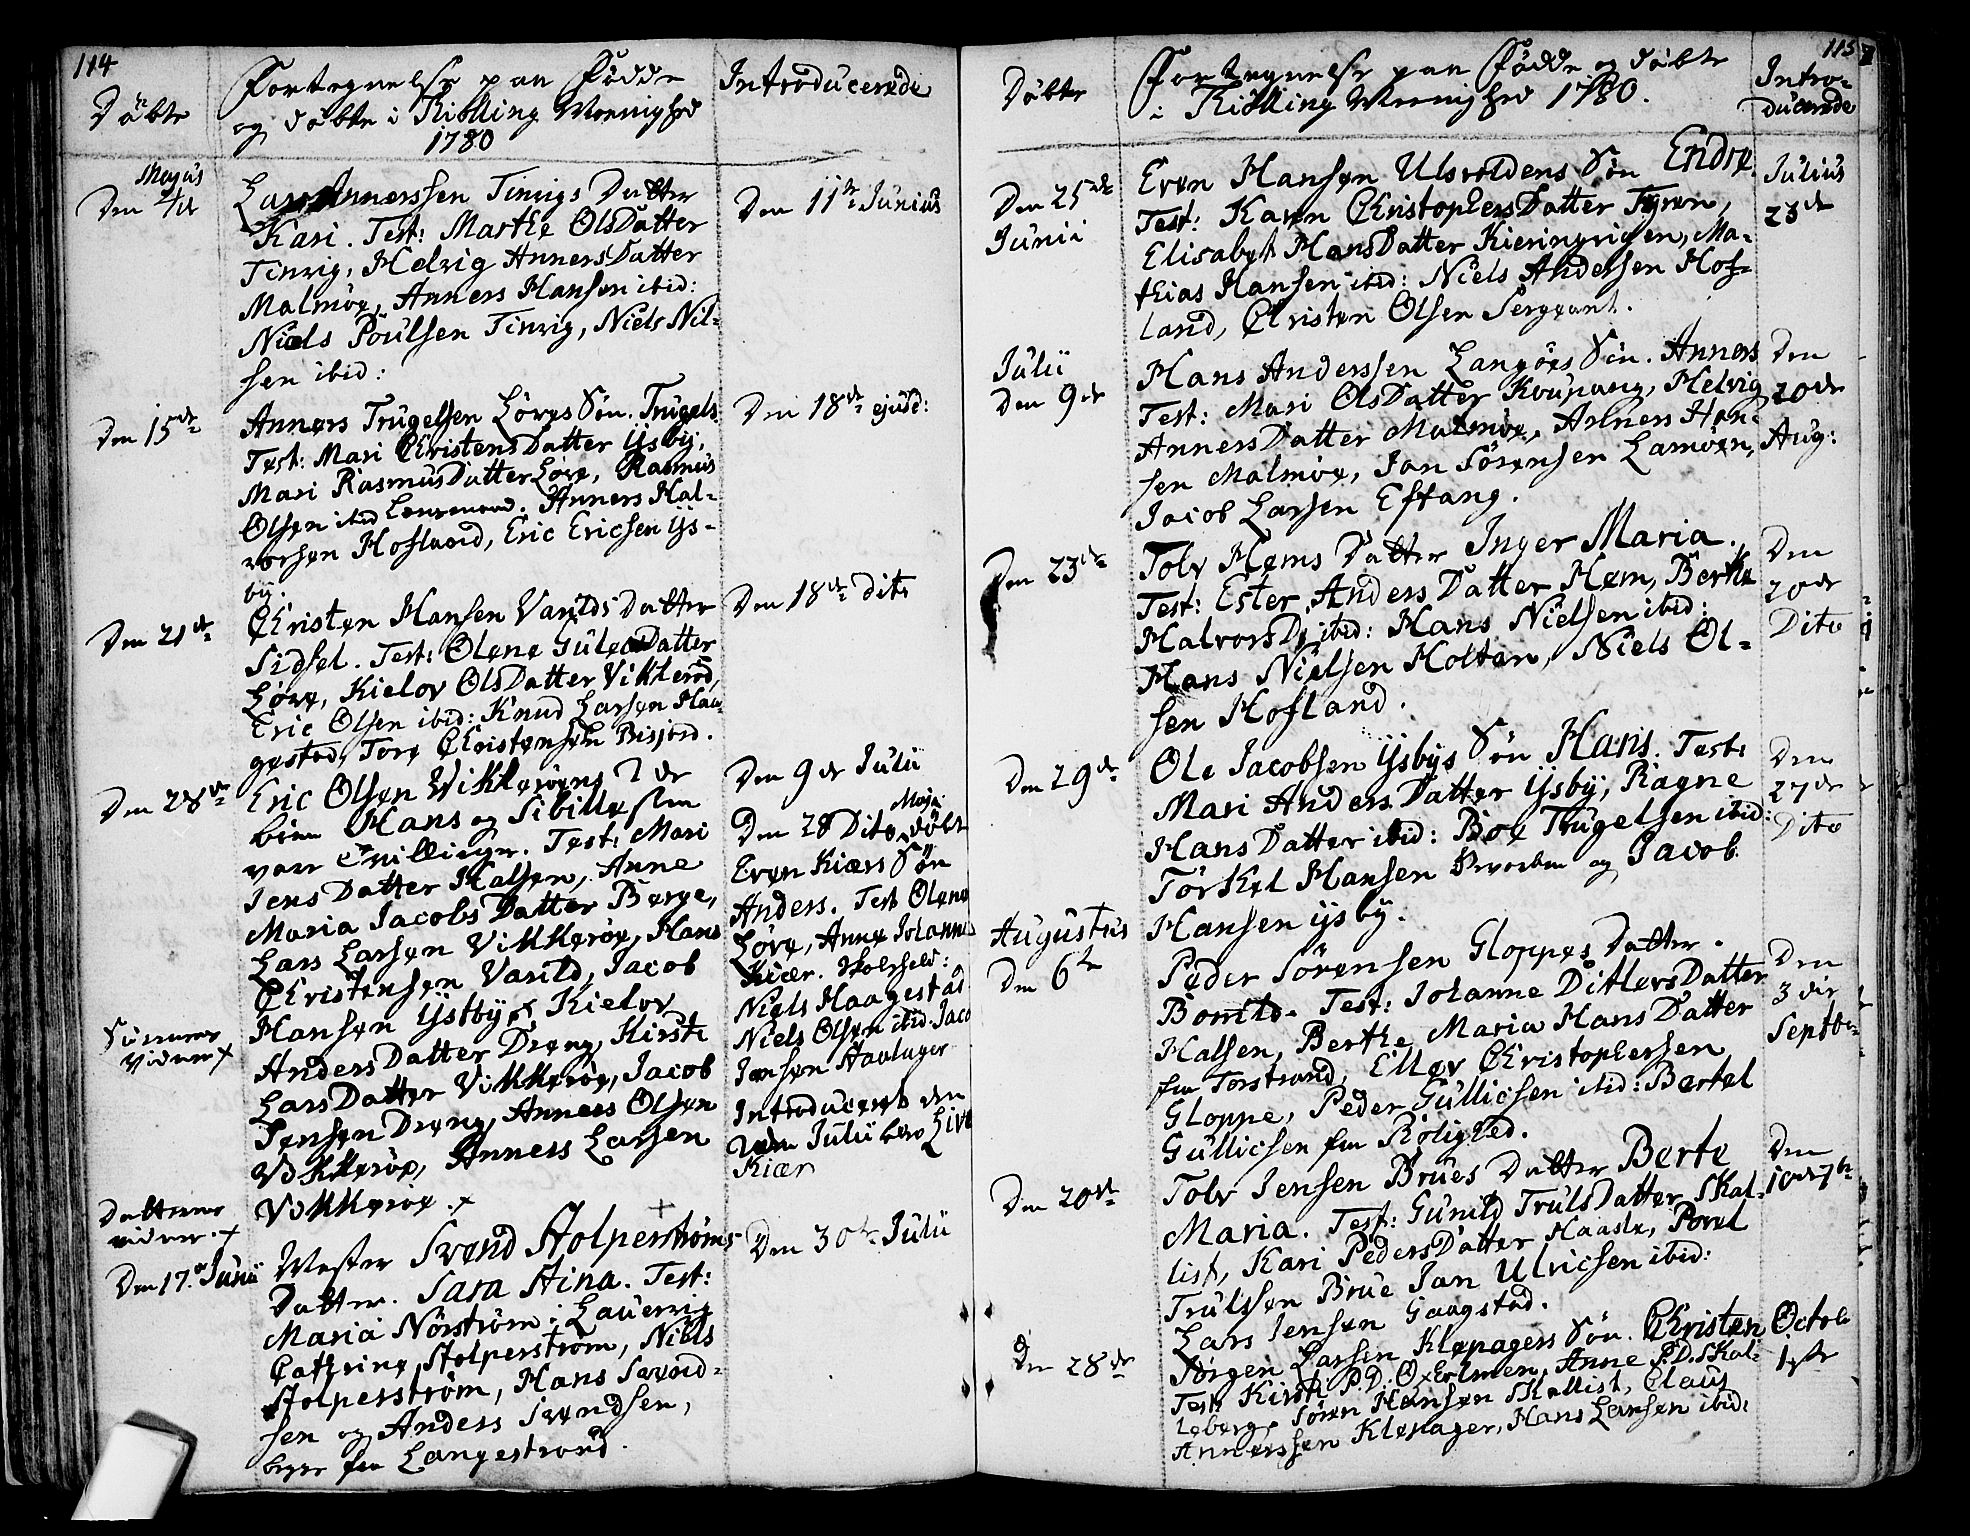 114
Döbte
Fortegnelse paa Födde
og döbte i Kiölling Meenighed
1780
Introducerede
Majus
Den
Lars Annerssen Tinvigs Datter
Kari. Test: Marthe OlsDatter
Tinvig, Helvig AnnersDatter
Malmöe, Anners Hansen ibid:
Niels Poulsen Tinvig, Niels Nil-
sen ibid:
Den 11te Junius
Den 15de
Anners Trugelsen Löves Sön. Trugels.
Test: Mari ChristensDatter Ijsby,
Mari RasmusDatter Løve, Rasmus
Olsen ibid Anners Hal-
vorsen Hofland, Eric Ericsen ijs-
by.
Den 18de ejusd:
Den 21de
Christen Hansen Varilds Datter
Sidsel. Test: Olene GuleDatter
Løve, Kielov OlsDatter Vikkeröd,
Eric Olsen ibid: Knud Larsen Hau-
gestad, Tore Christensen Bisjord.
Den 18de Dito
Den 28de
Eric Olsen Vikkeröens 2de
börn Hans og Sibille som
vare Tvillinger. Test: Mari
JensDatter Halsen, Anne
Maria JacobsDatter Berge,
Lars Larsen Vikkerøe, Hans
Christensen Varild, Jacob
Hansen ijstby x Kielov
AndersDatter Dreng, Kirsti
LarsDatter Vikkerøe, Jacob
Jensen Dreng, Anners Olsen
Vikkerøe, Anners Larsen
Vikkerøe. x
Sönnens
Vidner x
Datterens
vidner. x
Den 9de Julii
Den 28 Dito Maji döbt
Even Kiærs Sön
Anders. Test Olene
Løve, Anne Johanne
Kiær.
Niels Haagestad
Niels Olsen ibid. Jaco
Jensen Havlager
Introduceret den
Julii
Kiær
Den 17de Junii
Mester Svend Stolperströms
Datter. Sara Stina. Test:
Maria Nörström i Laurvig
Cathrine Stolperström, Niels
Stolperström, Hans Svend-
sen og Anders Svendsen,
begge fra Langestrand.
Den 30te Julii
115
Döbte
Fortegnelse paa Födde og döbte
i Kiölling Meenighed 1780.
Intro-
ducerede
Den 25de
Junii
Even Hansen Ulsvoldens Sön Endre.
Test: Karen ChristophersDatter
Elisabet HansDatter Kieringvigen, Ma-
thias Hansen ibid: Niels Andersen Hof-
land, Christen Olsen Sergeant.
Julius
23de
Julii
Den 9de
Hans Anderssen Langöes Sön. Anners
Test: Mari OlsDatter Koupang, Helvig
AnnersDatter Malmöe, Anners Han-
sen Malmöe, Jan Sörensen Lamöen,
Jacob Larsen Eftang.
Den
20de
Aug:
Den 23de
Tolv Hems Datter Inger Maria.
Test: Ester AndersDatter Hem, Berthe
HalvorsD: ibid: Hans Nielsen ibid:
Hans Nielsen Holtan, Niels Ol-
sen Hofland.
Den
20de
Dito
Den 29de
Ole Jacobsen ijsbys Sön Hans. Test:
Mari AndersDatter ijsby, Ragne
HansDatter ibid: Boe Trugelsen ibid:
Törkel Hansen og Jacob
Hansen ijsby.
Den
27de
Dito
Augustus
Den 6te
Peder Sörensen Gloppes Datter.
Bomild. Test: Johanne DitlevsDatter
Halsen, Berthe Maria HansDatter
fra Torstrand, Ellev Christophersen
Gloppe, Peder Gullicsen ibid: Bertel
Gullicsen fra Rolighed.
Den
3die
Septbr.
Den 20de
Tolv Jensen Brues Datter Berte
Maria. Test: Gunild TrulsDatter Skal-
list, Kari PedersDatter Haasle, Povel
Trulssen Brue Jan Ulricsen ibid:
Lars Jensen Gaagstad.
Den
10de 7br
Den 28de
Jörgen Larsen Klepagers Sön. Christen
Test: Kirsti P.D. O. Anne P.D. Skal-
leberg, Sören Hansen Skallist, Claus
Annerssen Klepager, Hans Larsen ibid:
Octob
1ste